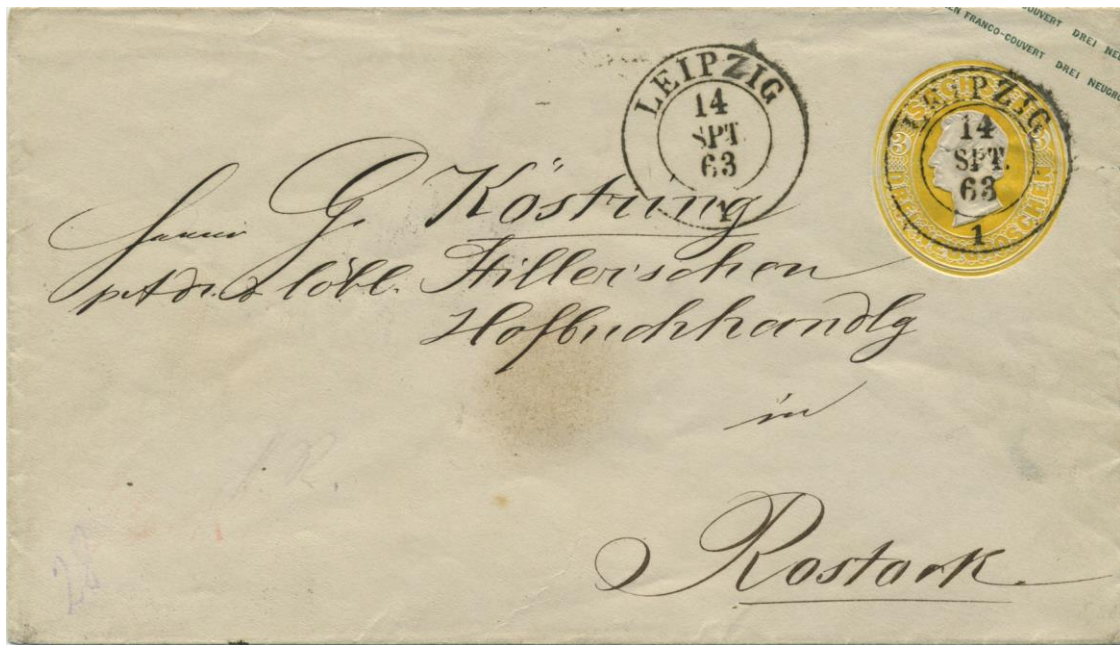 COUVERT DREI NEU
EN FRANCO-COUVERT DREI NEUGR
LEIPZIG
14
SPT
63
1
LEIPZIG
14
SPT.
63
1
3 3
Herrn G. Köstrung
p. Adr. d. löbl. Stiller'schen
Hofbuchhandlg
in
Rostock.
28